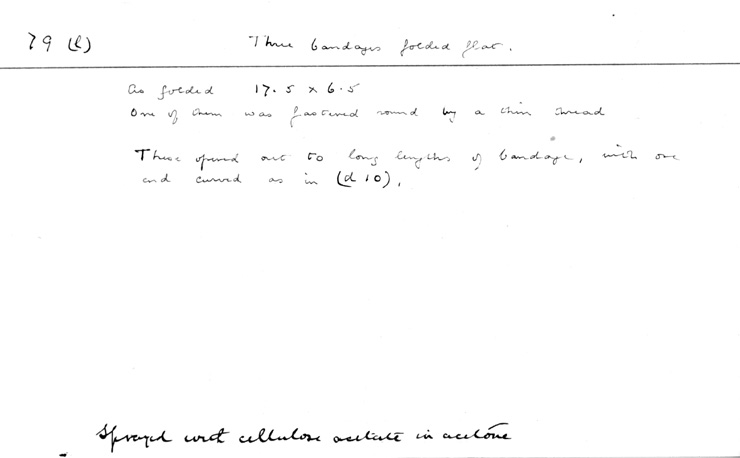 79 (l) Three bandages folded flat.
As folded 17.5 x 6.5
One of them was fastened round by a thin thread
These opened out to long lengths of bandage, with one
end curved as in (d 10).
Sprayed with cellulose acetate in acetone